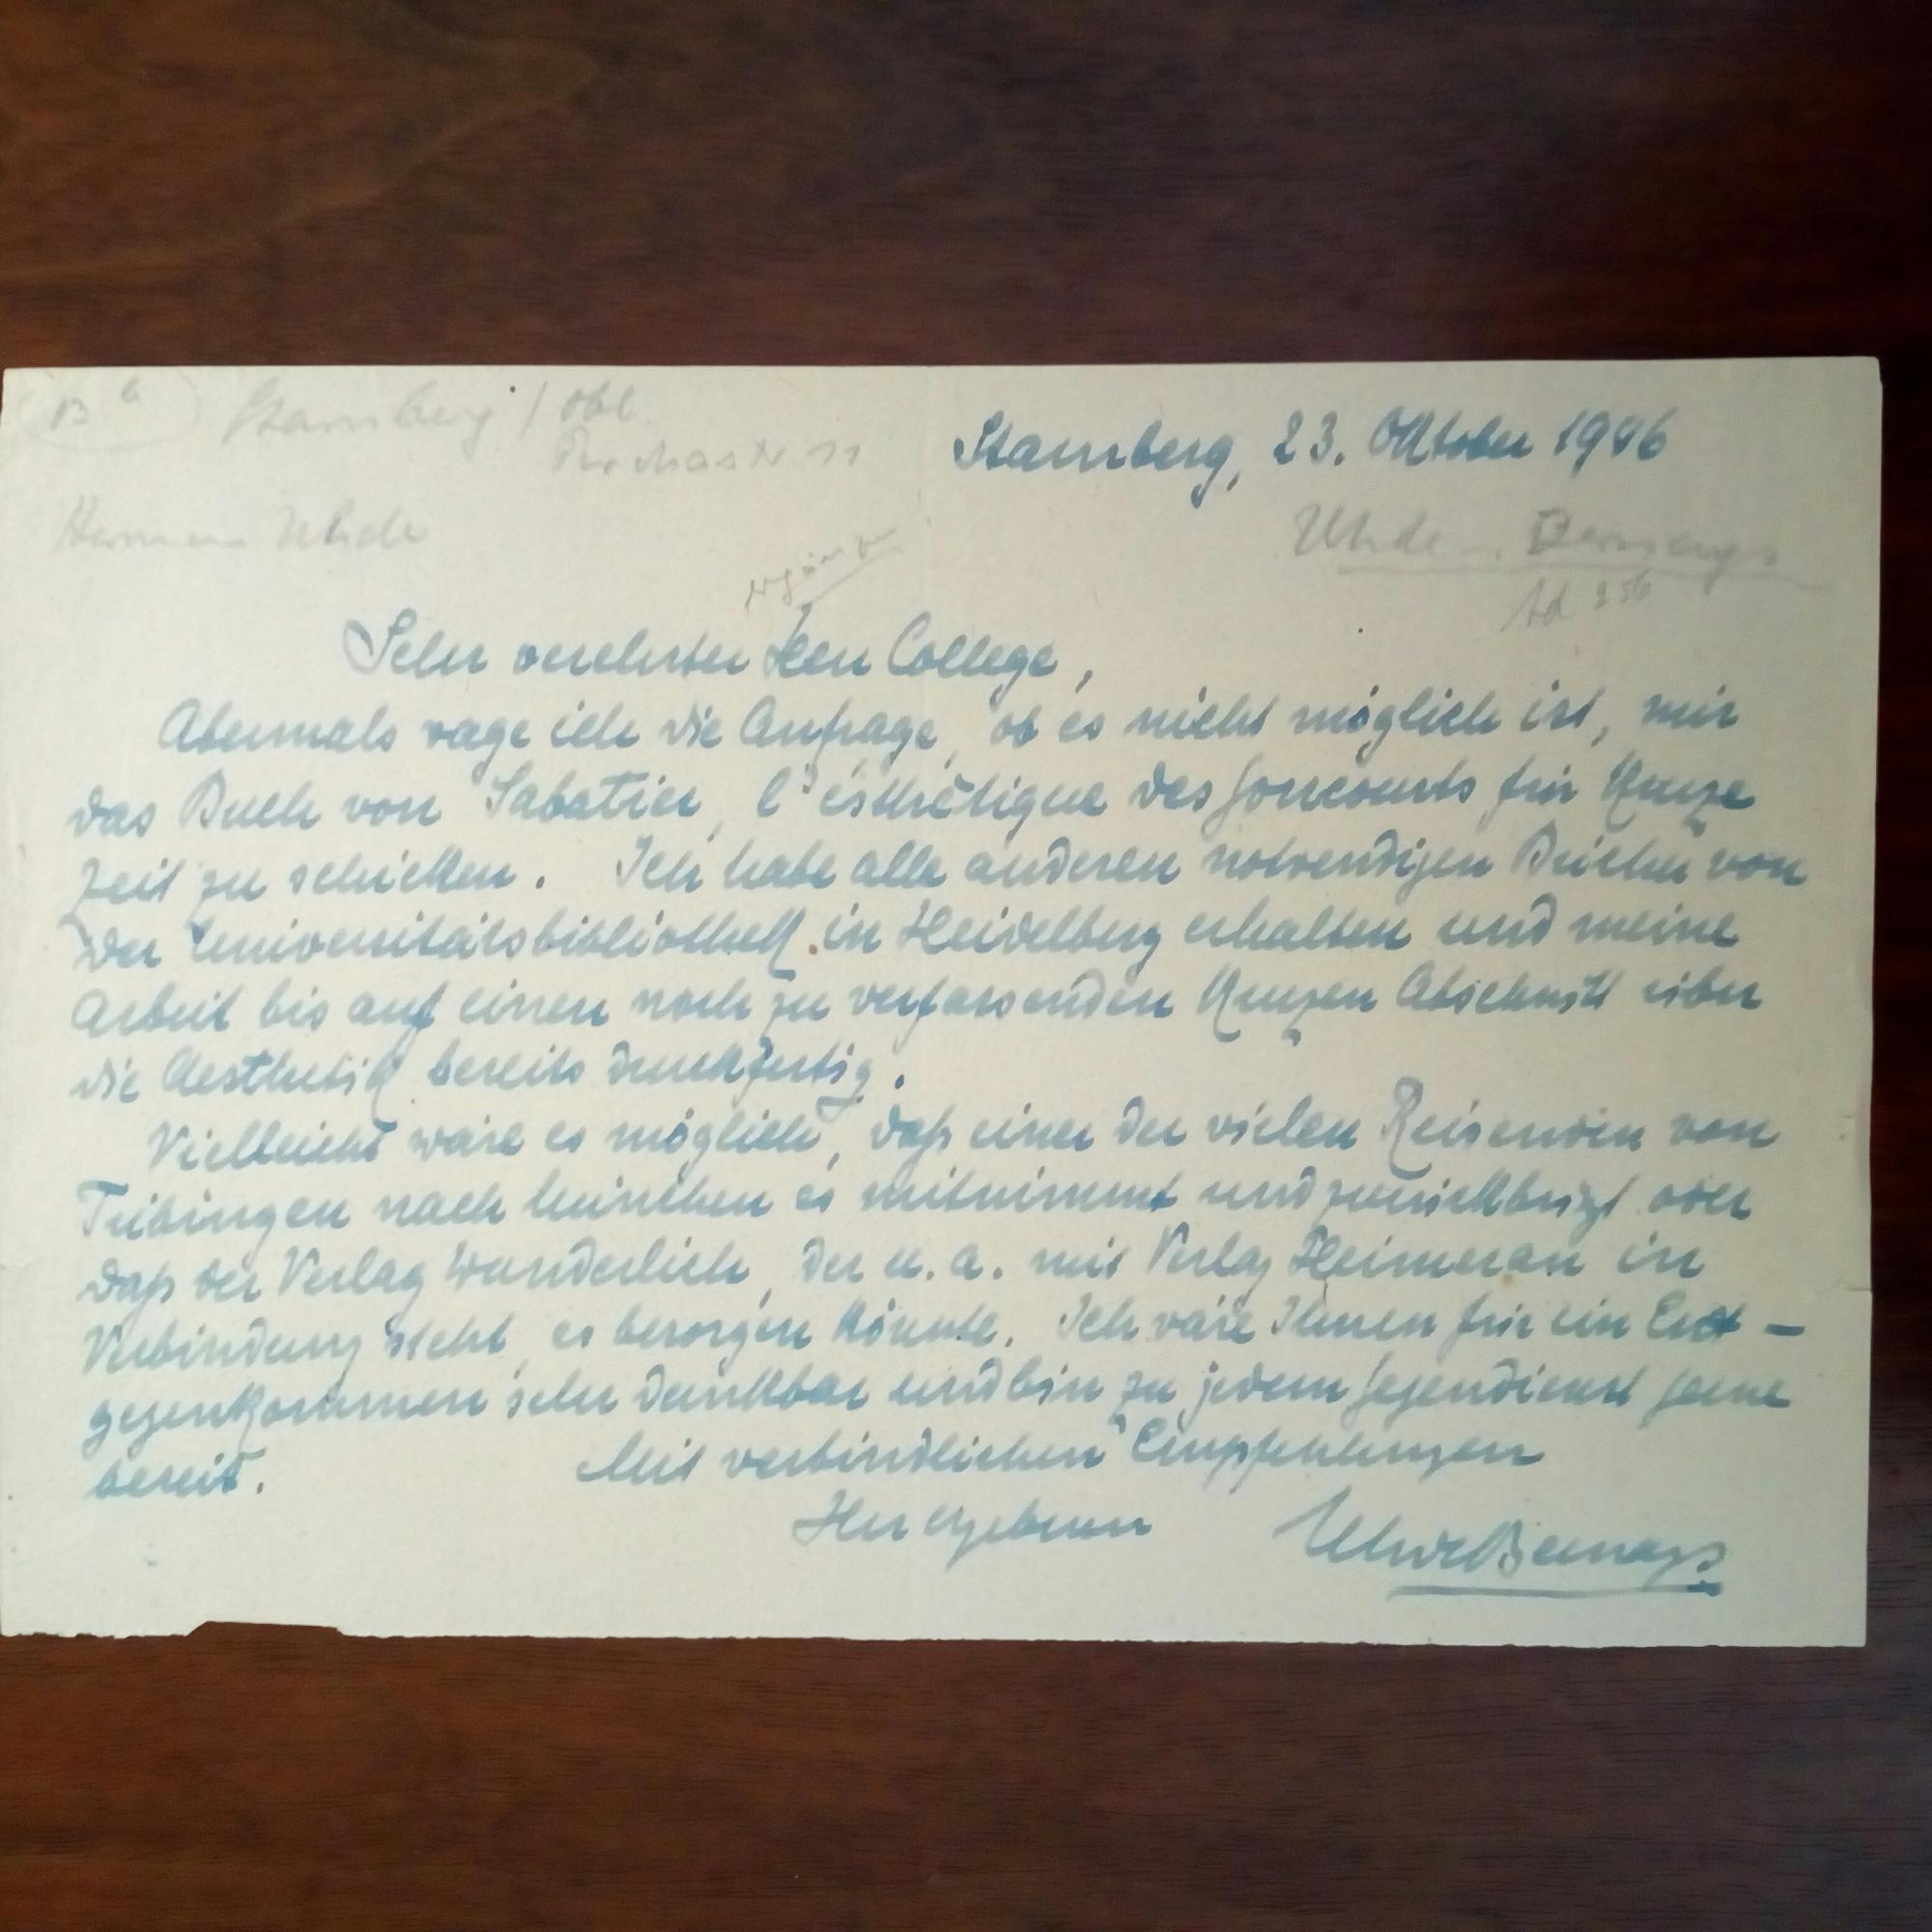 Starnberg / Obb.
Starnberg, 23. Oktober 1946
Herman Uhde
Uhde-Bernays
Sehr verehrter Herr College,
Abermals wage ich die Anfrage, ob es nicht möglich ist, mir
das Buch von Sabatier, l'ésthètique des Goncourts für kurze
Zeit zu schicken. Ich habe alle anderen notwendigen Bücher von
der Universitätsbibliothek in Heidelberg erhalten und meine
Arbeit bis auf einen noch zu verfassenden kurzen Abschnitt über
die Aesthetik bereits druckfertig.
Vielleicht wäre es möglich, daß einer der vielen Reisenden von
Tübingen nach München es mitnimmt und zurückbringt oder
daß der Verlag Wunderlich, der u. a. mit Verlag Heimeran in
Verbindung steht, es besorgen könnte. Ich wäre Ihnen für ein Ent-
gegenkommen sehr dankbar und bin zu jedem Gegendienst gerne
bereit. Mit verbindlichen Empfehlungen
Ihr ergebener UhdeBernays